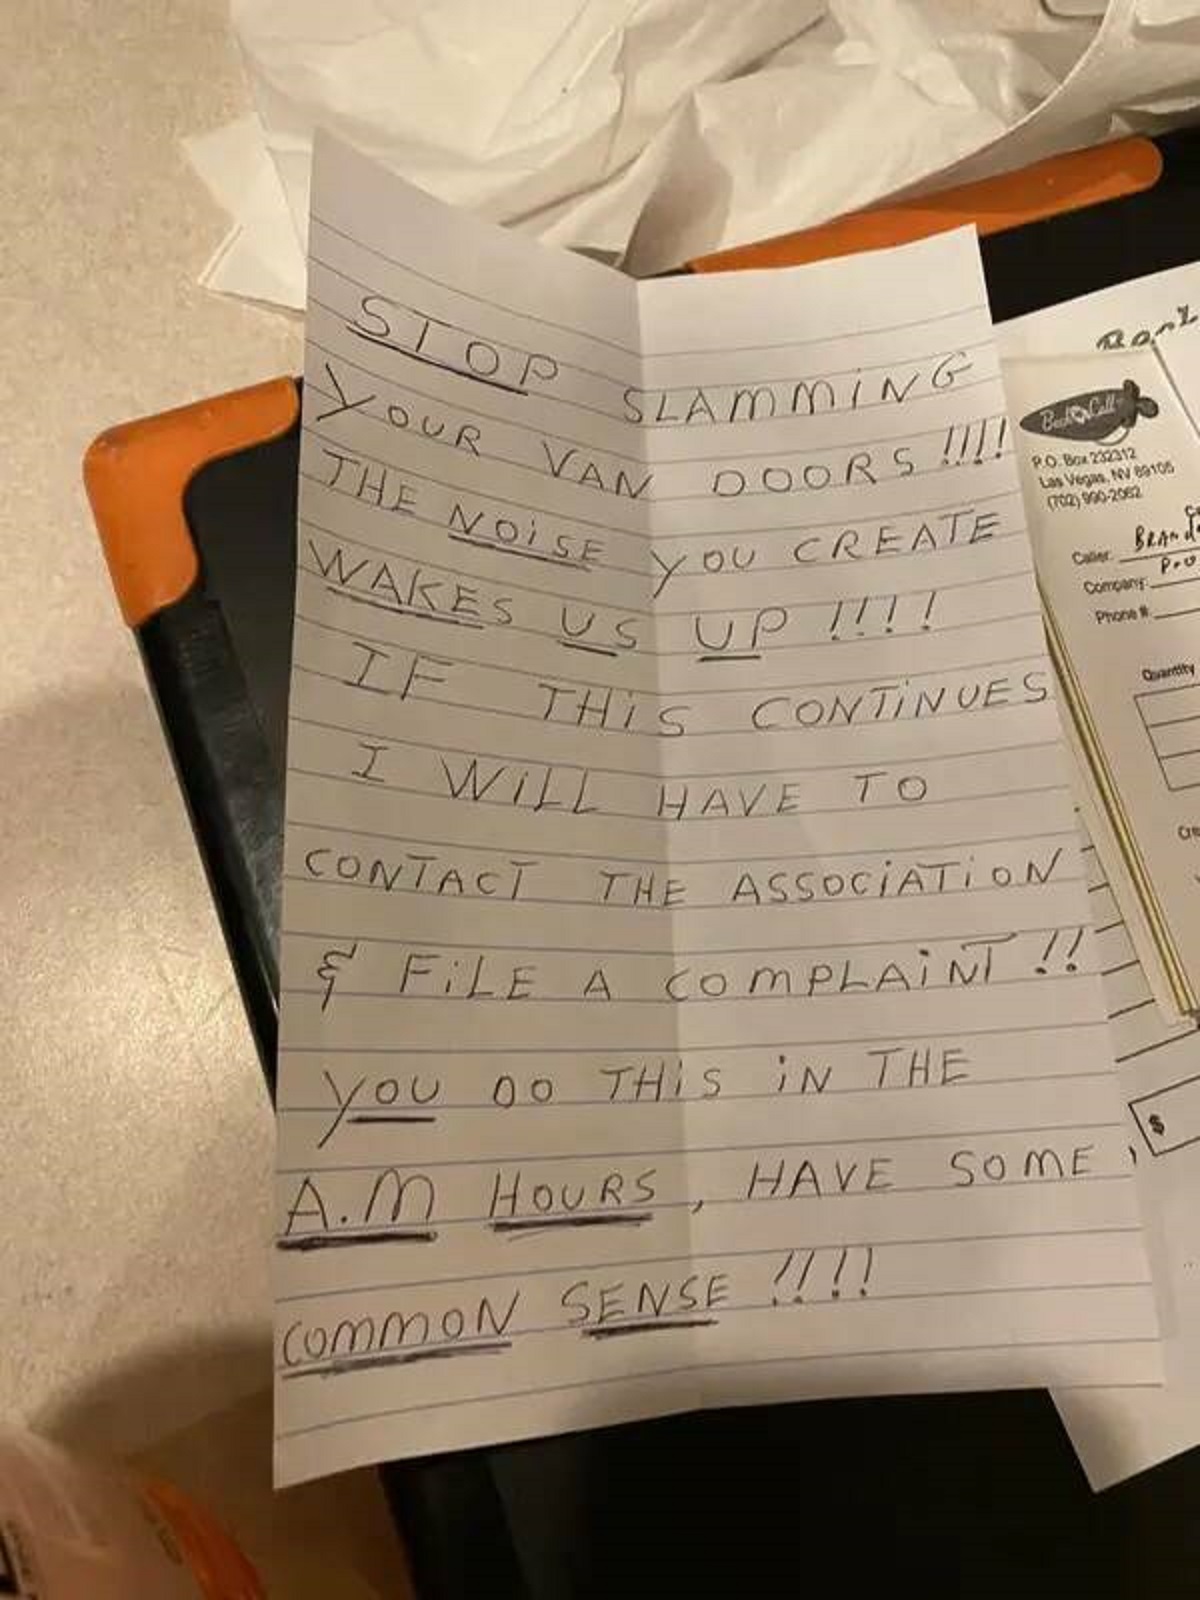 STOP SLAMMiNG
YOUR VAN DOORS !!!!
THE NOiSE YOU CREATE
WAKES US UP !!!!
IF THiS CONTiNUES
I WiLL HAVE TO
CONTACT THE ASSOCiATiON
& FiLE A COMPLAiNT !!
YOU DO THiS iN THE
A.M HOURS, HAVE SOME
COMMON SENSE !!!!
Beck Call
P.O. Box 232312
Las Vegas, NV 89105
(702) 990-2062
Caller:
Company:
Phone #:
Quantity
$